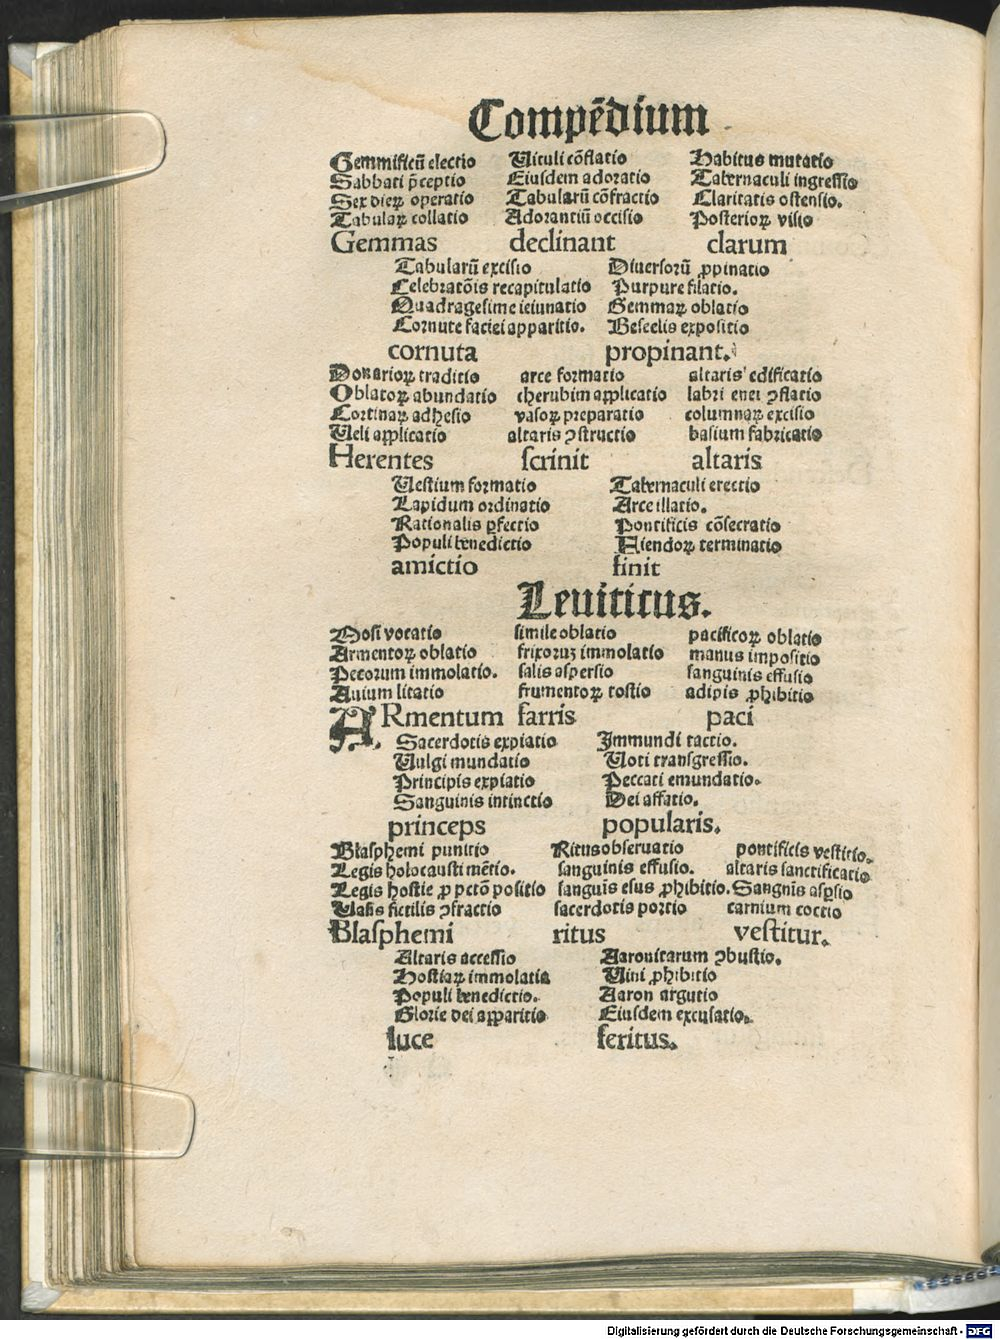 Compēdium
Gemmificū electio Uituli cōflatio Habitus mutatio
Sabbati p̄ceptio Eiusdem adoratio Tabernaculi ingressio
Sex dieꝝ operatio Tabularū cōfractio Claritatis ostensio.
Tabulaꝝ collatio Adorantiū occisio Posterioꝝ visio
Gemmas declinant clarum
Tabularū excisio Diuersorū ꝓpinatio
Celebratōis recapitulatio Purpure filatio.
Quadragesime ieiunatio Gemmaꝝ oblatio
Cornute faciei apparitio. Beseelis expositio
cornuta propinant.
Donarioꝝ traditio arce formatio altaris edificatio
Oblatoꝝ abundatio cherubim applicatio labri enei ꝯflatio
Cortinaꝝ adhesio vasoꝝ preparatio columnaꝝ excisio
Ueli applicatio altaris ꝯstructio basium fabricatio
Herentes scrinit altaris
Uestium formatio Tabernaculi erectio
Lapidum ordinatio Arce illatio.
Rationalis ꝑfectio Pontificis cōsecratio
Populi benedictio Fiendoꝝ terminatio
amictio finit
Leuiticus.
Mosi vocatio simile oblatio pacificoꝝ oblatio
Armentoꝝ oblatio frixoruꝫ immolatio manus impositio
Pecorum immolatio. salis aspersio sanguinis effusio
Auium litatio frumentoꝝ tostio adipis ꝓhibitio
ARmentum farris paci
Sacerdotis expiatio Immundi tactio.
Uulgi mundatio Uoti transgressio.
Principis expiatio Peccati emundatio.
Sanguinis intinctio Dei affatio.
princeps popularis.
Blasphemi punitio Ritus obseruatio pontificis vestitio.
Legis holocausti mētio. sanguinis effusio. altaris sanctificatio
Legis hostie ꝓ pctō positio sanguīs esus ꝓhibitio. Sangnis aspsio
Uasis fictilis ꝯfractio sacerdotis portio carnium coctio
Blasphemi ritus vestitur.
Altaris accessio Aaronitarum ꝯbustio.
Hostiaꝝ immolatio Uini ꝓhibitio
Populi benedictio. Aaron argutio
Glorie dei apparitio Eiusdem excusatio.
luce feritus.
Digitalisierung gefördert durch die Deutsche Forschungsgemeinschaft - DFG